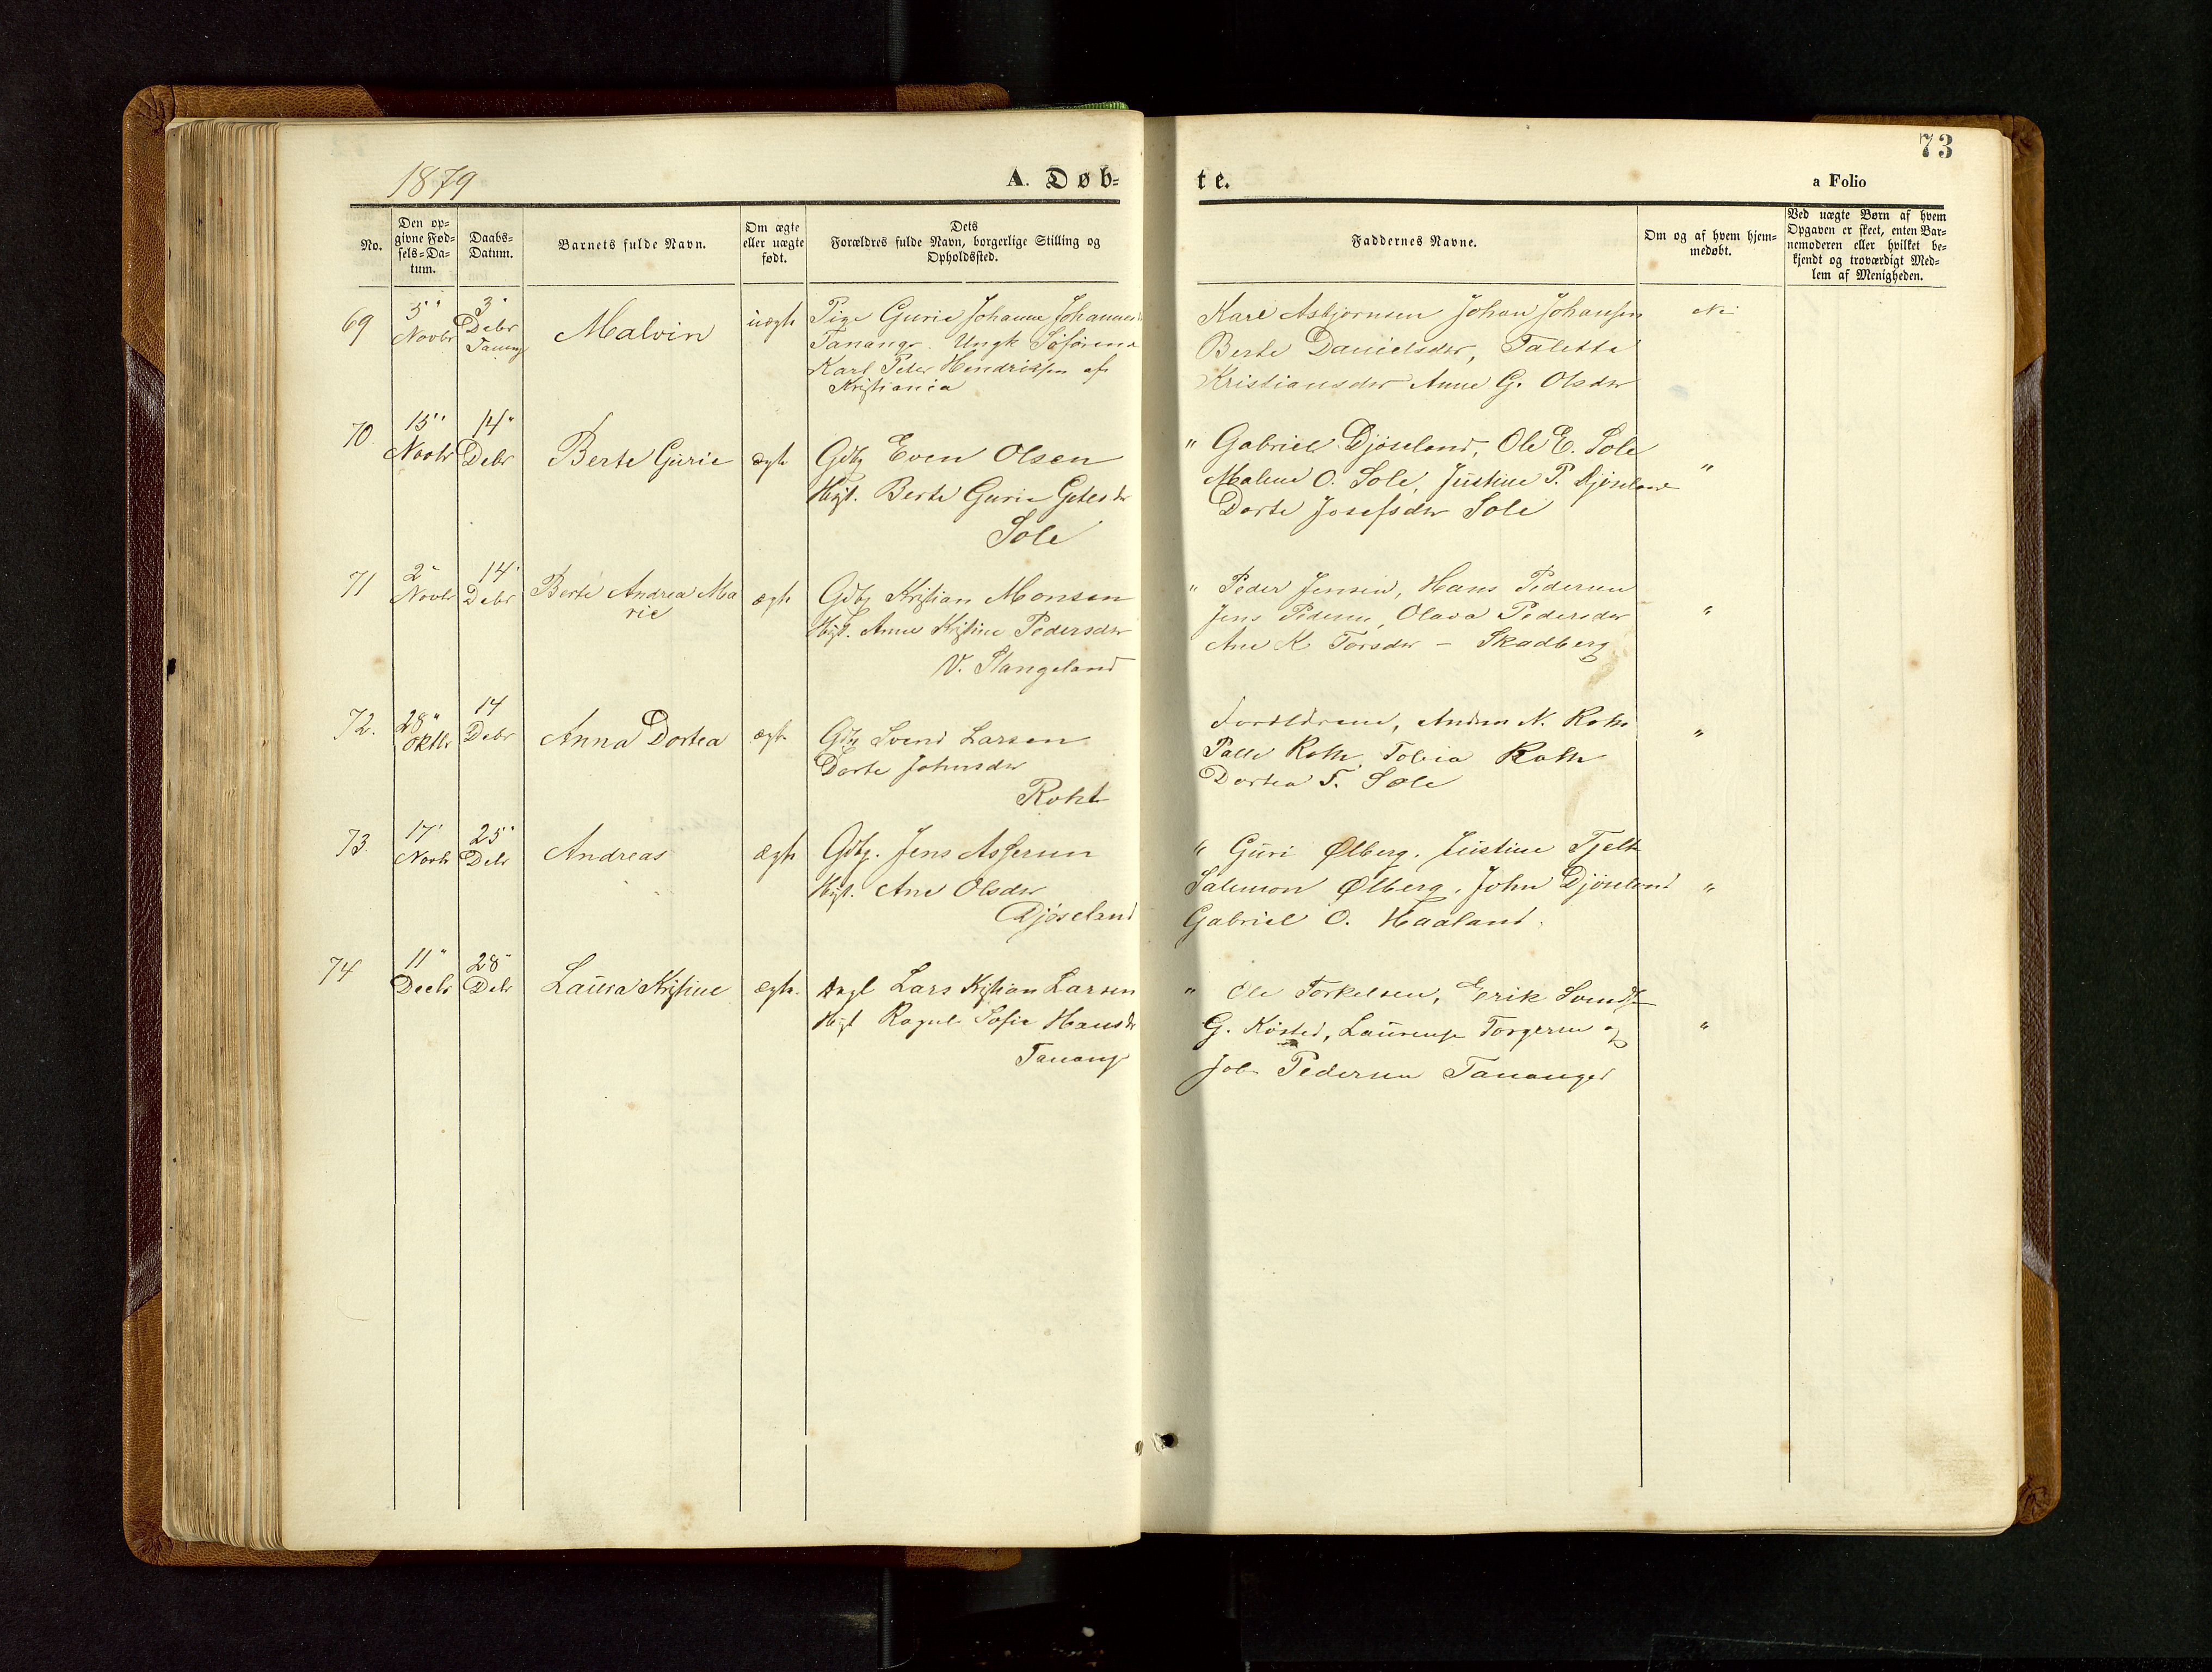 73
1879
A. Døb-
te.
a Folio
No.
Den op-
givne Fød-
sels-Da-
tum.
Daabs-
Datum.
Barnets fulde Navn.
Om ægte
eller uægte
født.
Dets
Forældres fulde Navn, borgerlige Stilling og
Opholdssted.
Faddernes Navne.
Om og af hvem hjem-
medøbt.
Ved uægte Børn af hvem
Opgaven er skeet, enten Bar-
nemoderen eller hvilket be-
kjendt og troværdigt Med-
lem af Menigheden.
69
5"
Novbr
3"
Debr
Malvin
uægte
Pige Gurie Johanne
Tananger. Ungk
Karl Peter Hendriksen af
Kristiania
Karl Asbjørnsen Johan Johansen
Berte Danielsdr, Taletta
Kristiansdr Anne G. Olsdr
70
15"
Novbr
14"
Debr
Berte Gurie
ægte
Gdbg Even Olsen
Hust. Berte Gurie
Sole
" Gabriel Djøseland, Ole E. Sole
Malene O. Sole, Justine P. Djøseland
Dorte Josefsdr Sole
"
71
2"
Novbr
14"
Debr
Berte Andrea Ma
rie
ægte
Gdbg Kristian Monsen
Hust. Anne Kristine Pedersdr
V. Stangeland
" Peder Jensen, Hans Pedersen
Jens Pedersen, Olava Pedersdr
Ane K. Torsdr - Skadberg
"
72.
28"
Oktbr
14
Debr
Anna Dortea
ægte
Gdbg Svend Larsen
Dorte Johnsdr
Roht
Forældrene, Andreas N. Roht
Palle Roht, Tobia Roht
Dortea T. Sole
"
73.
17"
Novbr
25"
Debr
Andreas
ægte
Gdbg. Jens Asgersen
Hust. Ane Olsdr
Djøseland
" Guri Ølberg. Justine Tjelte
Salemon Ølberg, John Djøseland
Gabriel O. Haaland.
"
74
11"
Decbr
28"
Debr
Laura Kristine
ægte
Lars Kristian Larsen
Hust Sofie Hansdr
Tananger
" Ole Torkelsen, Erik
G. Kósted, Torgersen og
Pedersen Tananger
"